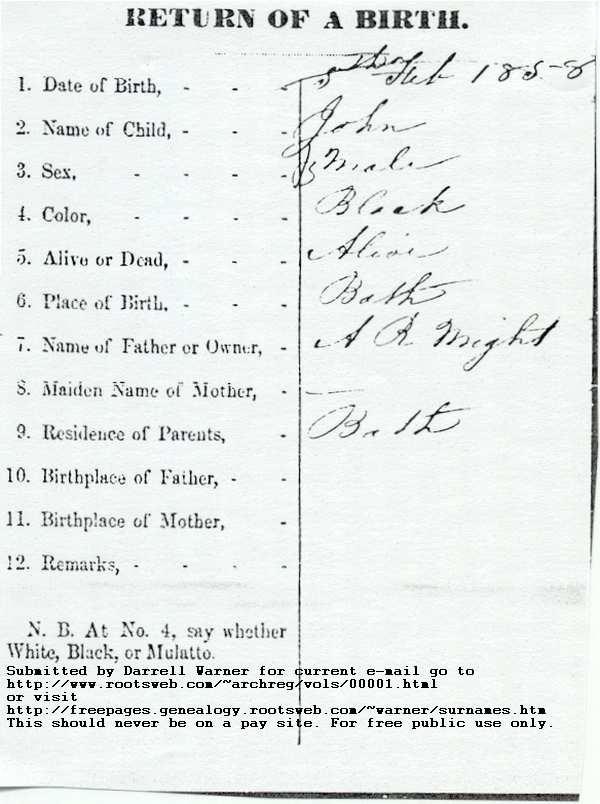 RETURN OF A BIRTH.
1. Date of Birth, - - - 5 Feb 1858
2. Name of Child, - - - John
3. Sex, - - - - Male
4. Color, - - - - Black
5. Alive or Dead, - - - Alive
6. Place of Birth. - - - Bath
7. Name of Father or Owner, - A R Wright
8. Maiden Name of Mother, - —
9. Residence of Parents, - Bath
10. Birthplace of Father, - -
11. Birthplace of Mother, -
12. Remarks, - - - -
N. B. At No. 4, say whether
White, Black, or Mulatto.
Submitted by Darrell Warner for current e-mail go to
http://www.rootsweb.com/~archreg/vols/00001.html
or visit
http://freepages.genealogy.rootsweb.com/~warner/surnames.htm
This should never be on a pay site. For free public use only.